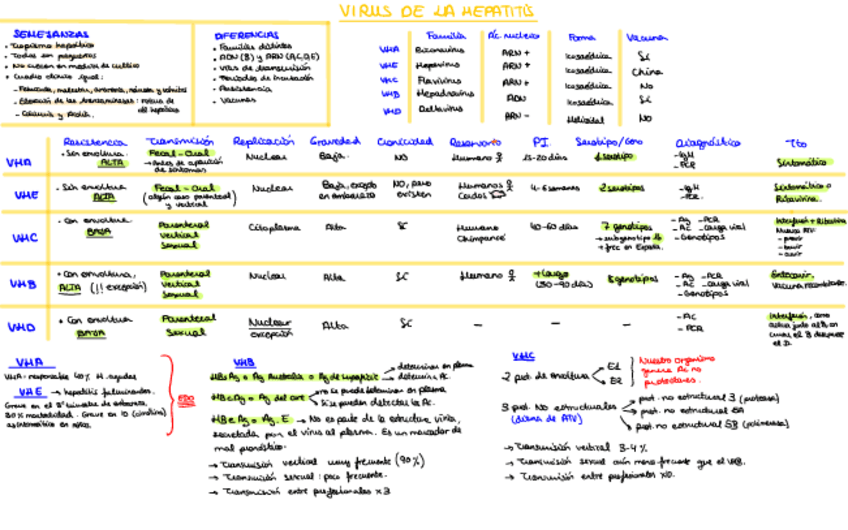 VIRUS DE LA HEPATITIS
SEMEJANZAS
· Tropismo hepático
· Todos son pequeños
· No crecen en medios de cultivo
· Cuadro clínico igual:
DIFERENCIAS
· Familias distintas
· ADN (B) y ARN (A,C,D,E)
· Vías de transmisión
· Períodos de incubación
· Persistencia
· Vacunas
Familia Ác nucleico Forma Vacuna
VHA Picornavirus ARN + Icosaédrica Sí
VHE Hepevirus ARN + Icosaédrica China
VHC Flavivirus ARN + Icosaédrica No
VHB Hepadnavirus ADN Icosaédrica Sí
VHD Deltavirus ARN - Helicoidal No
Resistencia Transmisión Replicación Gravedad Cronicidad Reservorio P.I. Serotipo/Geno Diagnóstico Tto
VHA · Sin envoltura. ALTA Fecal-Oral Nuclear Baja. NO Humano 15-20 días 1 serotipo -IgM -PCR Sintomático
→ Antes de aparición de síntomas
VHE · Sin envoltura ALTA Fecal-Oral (algún caso parenteral y vertical) Nuclear Baja, excepto en embarazo NO, pero existen Humanos Cerdos 4-6 semanas 2 serotipos -IgM -PCR. Sintomático o Ribavirina.
VHC · Con envoltura BAJA Parenteral Vertical Sexual Citoplasma Alta Sí Humano Chimpancé 40-60 días 7 genotipos → subgenotipo 1b + frec en España. -Ag -PCR -AC -Carga viral -Genotipos Interferón + Ribavirina
VHB · Con envoltura, ALTA (!! excepción) Parenteral Vertical Sexual Nuclear Alta Sí Humano + Largo (30-90 días) 8 genotipos -Ag -PCR -AC -Carga viral -Genotipos Entecavir. Vacuna recombinante.
VHD · Con envoltura BAJA Parenteral Sexual Nuclear excepción Alta Sí - - - -AC -PCR Interferón, como
VHA
VHA → responsable 40% H. agudas
VHE → hepatitis fulminantes.
Grave en el 3er trimestre de embarazo,
asintomático en niños.
EDO
VHB
HBsAg = Ag Australia o Ag de superficie → determinar en plasma → determina AC.
HBcAg = Ag del core → no se puede determinar en plasma → Sí se pueden detectar los Ac.
HBeAg = Ag. E → No es parte de la estructura vírica,
secretada por el virus al plasma. Es un marcador de
mal pronóstico.
→ Transmisión vertical muy frecuente (90%)
→ Transmisión sexual: poco frecuente.
→ Transmisión entre profesionales x3
VHC
2 prot. de envoltura E1 E2
Nuestro organismo
genera Ac no
protectores.
3 prot. No estructurales
(diana de ATV)
→ prot. no estructural 3 (proteasa)
→ prot. no estructural 5A
→ prot. no estructural 5B (polimerasa)
→ Transmisión vertical 3-4%
→ Transmisión sexual aún menos frecuente que el VHB.